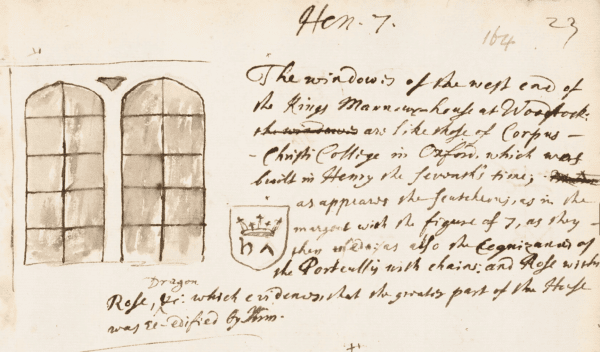 Hen. 7.
164
23
The windowes of the west end of
the Kings Mannour-house at Woodstock
the windowes are like those of Corpus-
Christi College in Oxford, which was
built in Henry the Seventh's time;
as appeares the Scutcheons, as in the
margent with the figure of 7, as they
then made; as also the Cognizances of
the Portcullis with chaines, and Rose within
Dragon
Rose, &c: which evidences that the greater part of the House
was re-edified by Him.
h ʌ